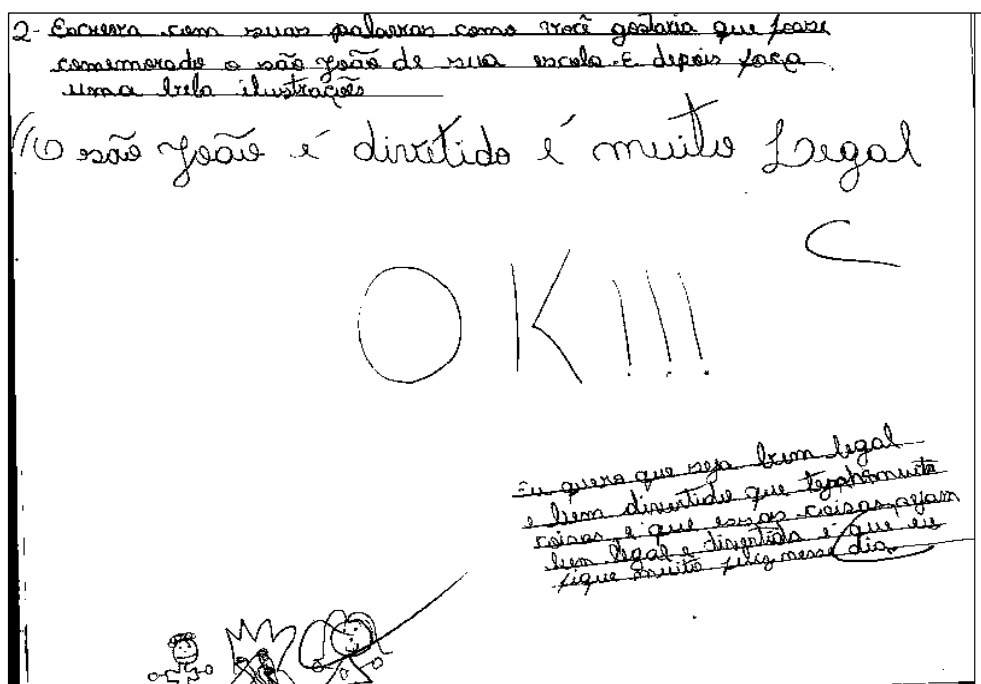 2- Escreva com suas palavras como você gostaria que fosse
comemorado o são João de sua escola. E depois faça
uma bela ilustrações
O são João é divertido é muito Legal
OK!!!
Eu quero que seja bem legal
e bem divertido que tenha muita
coisas, e que essas coisas sejam
bem legal e divertida e que eu
fique muito feliz nesse dia.